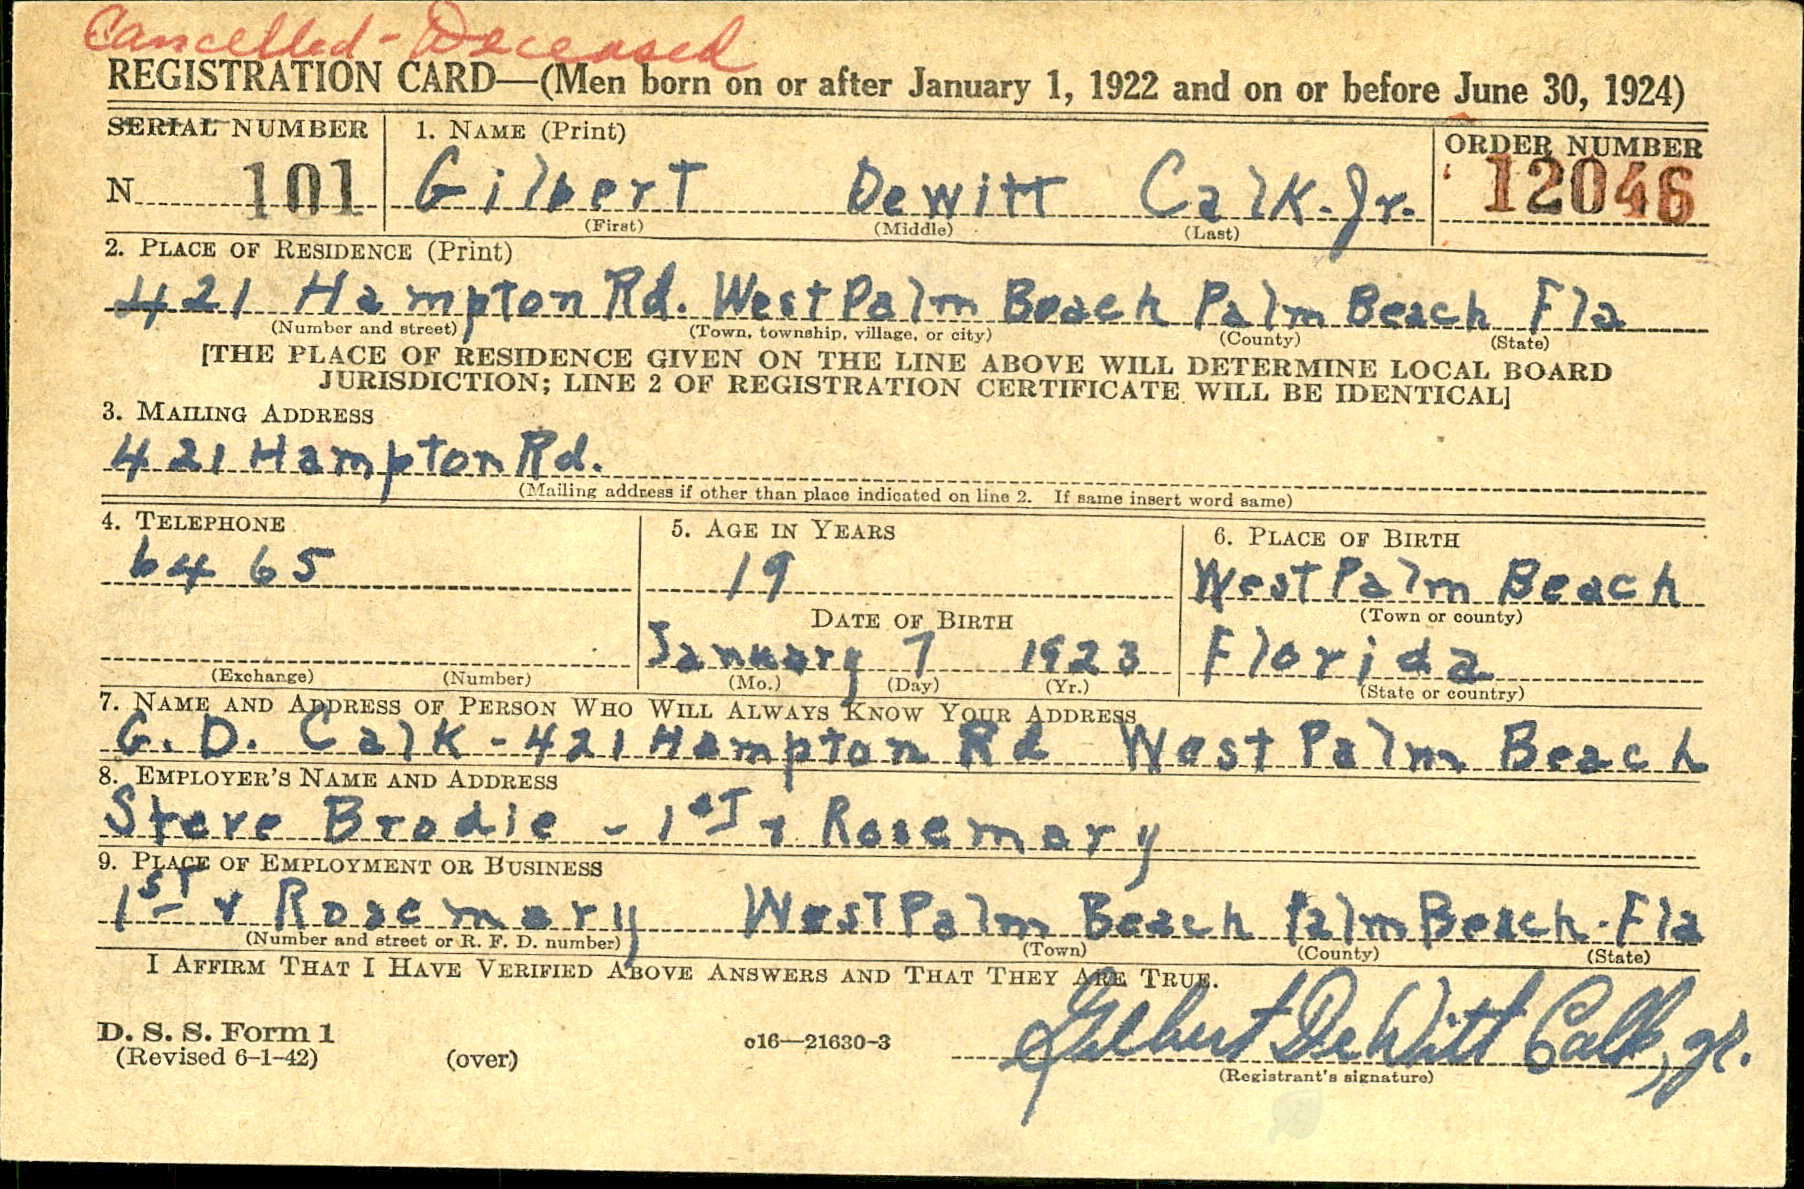 Cancelled - Deceased
REGISTRATION CARD—(Men born on or after January 1, 1922 and on or before June 30, 1924)
SERIAL NUMBER
1. NAME (Print)
ORDER NUMBER
N 101
Gilbert DeWitt Calk. Jr.
12046
(First) (Middle) (Last)
2. PLACE OF RESIDENCE (Print)
421 Hampton Rd. West Palm Beach Palm Beach Fla
(Number and street) (Town, township, village, or city) (County) (State)
[THE PLACE OF RESIDENCE GIVEN ON THE LINE ABOVE WILL DETERMINE LOCAL BOARD
JURISDICTION; LINE 2 OF REGISTRATION CERTIFICATE WILL BE IDENTICAL]
3. MAILING ADDRESS
421 Hampton Rd.
(Mailing address if other than place indicated on line 2. If same insert word same)
4. TELEPHONE
6465
(Exchange) (Number)
5. AGE IN YEARS
19
DATE OF BIRTH
January 7 1923
(Mo.) (Day) (Yr.)
6. PLACE OF BIRTH
West Palm Beach
(Town or county)
Florida
(State or country)
7. NAME AND ADDRESS OF PERSON WHO WILL ALWAYS KNOW YOUR ADDRESS
G. D. Calk - 421 Hampton Rd West Palm Beach
8. EMPLOYER'S NAME AND ADDRESS
Steve Brodie - 1st + Rosemary
9. PLACE OF EMPLOYMENT OR BUSINESS
1st + Rosemary West Palm Beach Palm Beach - Fla
(Number and street or R. F. D. number) (Town) (County) (State)
I AFFIRM THAT I HAVE VERIFIED ABOVE ANSWERS AND THAT THEY ARE TRUE.
D. S. S. Form 1
(Revised 6-1-42) (over)
c16—21630-3
Gilbert DeWitt Calk, Jr.
(Registrant's signature)